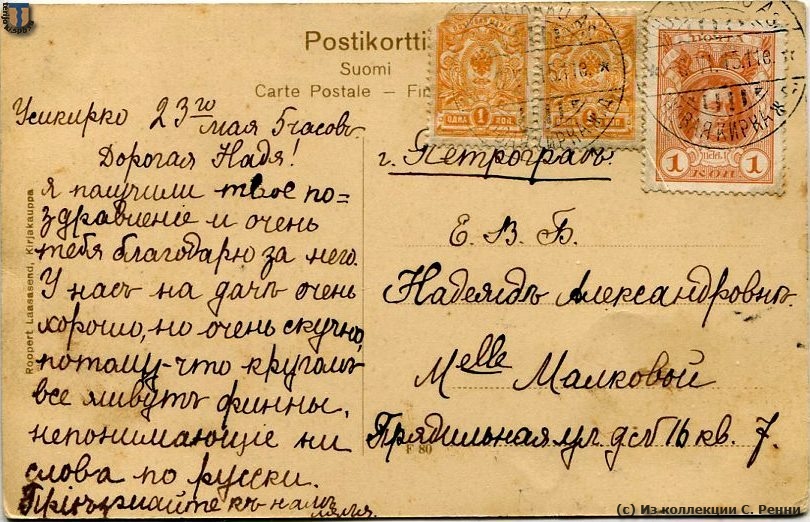 Postikortti
Suomi
Carte Postale — Fin
Усикирко 23го
мая 5 часовъ
Дорогая Надя!
я палучили твое по=
здравленіе и очень
тебя благодарю за него.
У насъ на дачѣ очень
хорошо, но очень скучно,
потому-что кругомъ
все живутъ финны,
непонимающіе ни
слова по русски.
Пріѣзжайте къ намъ
г. Петроградъ
Е. В. Б.
Надеждѣ Александровнѣ
Melle Малковой
Прядильная ул. д 16 кв. 7.
F 80
Roopert Laasasend, Kirjakauppa
1
ОДНА
КОП
1
1
1
КОП
(с) Из коллекции С. Ренни